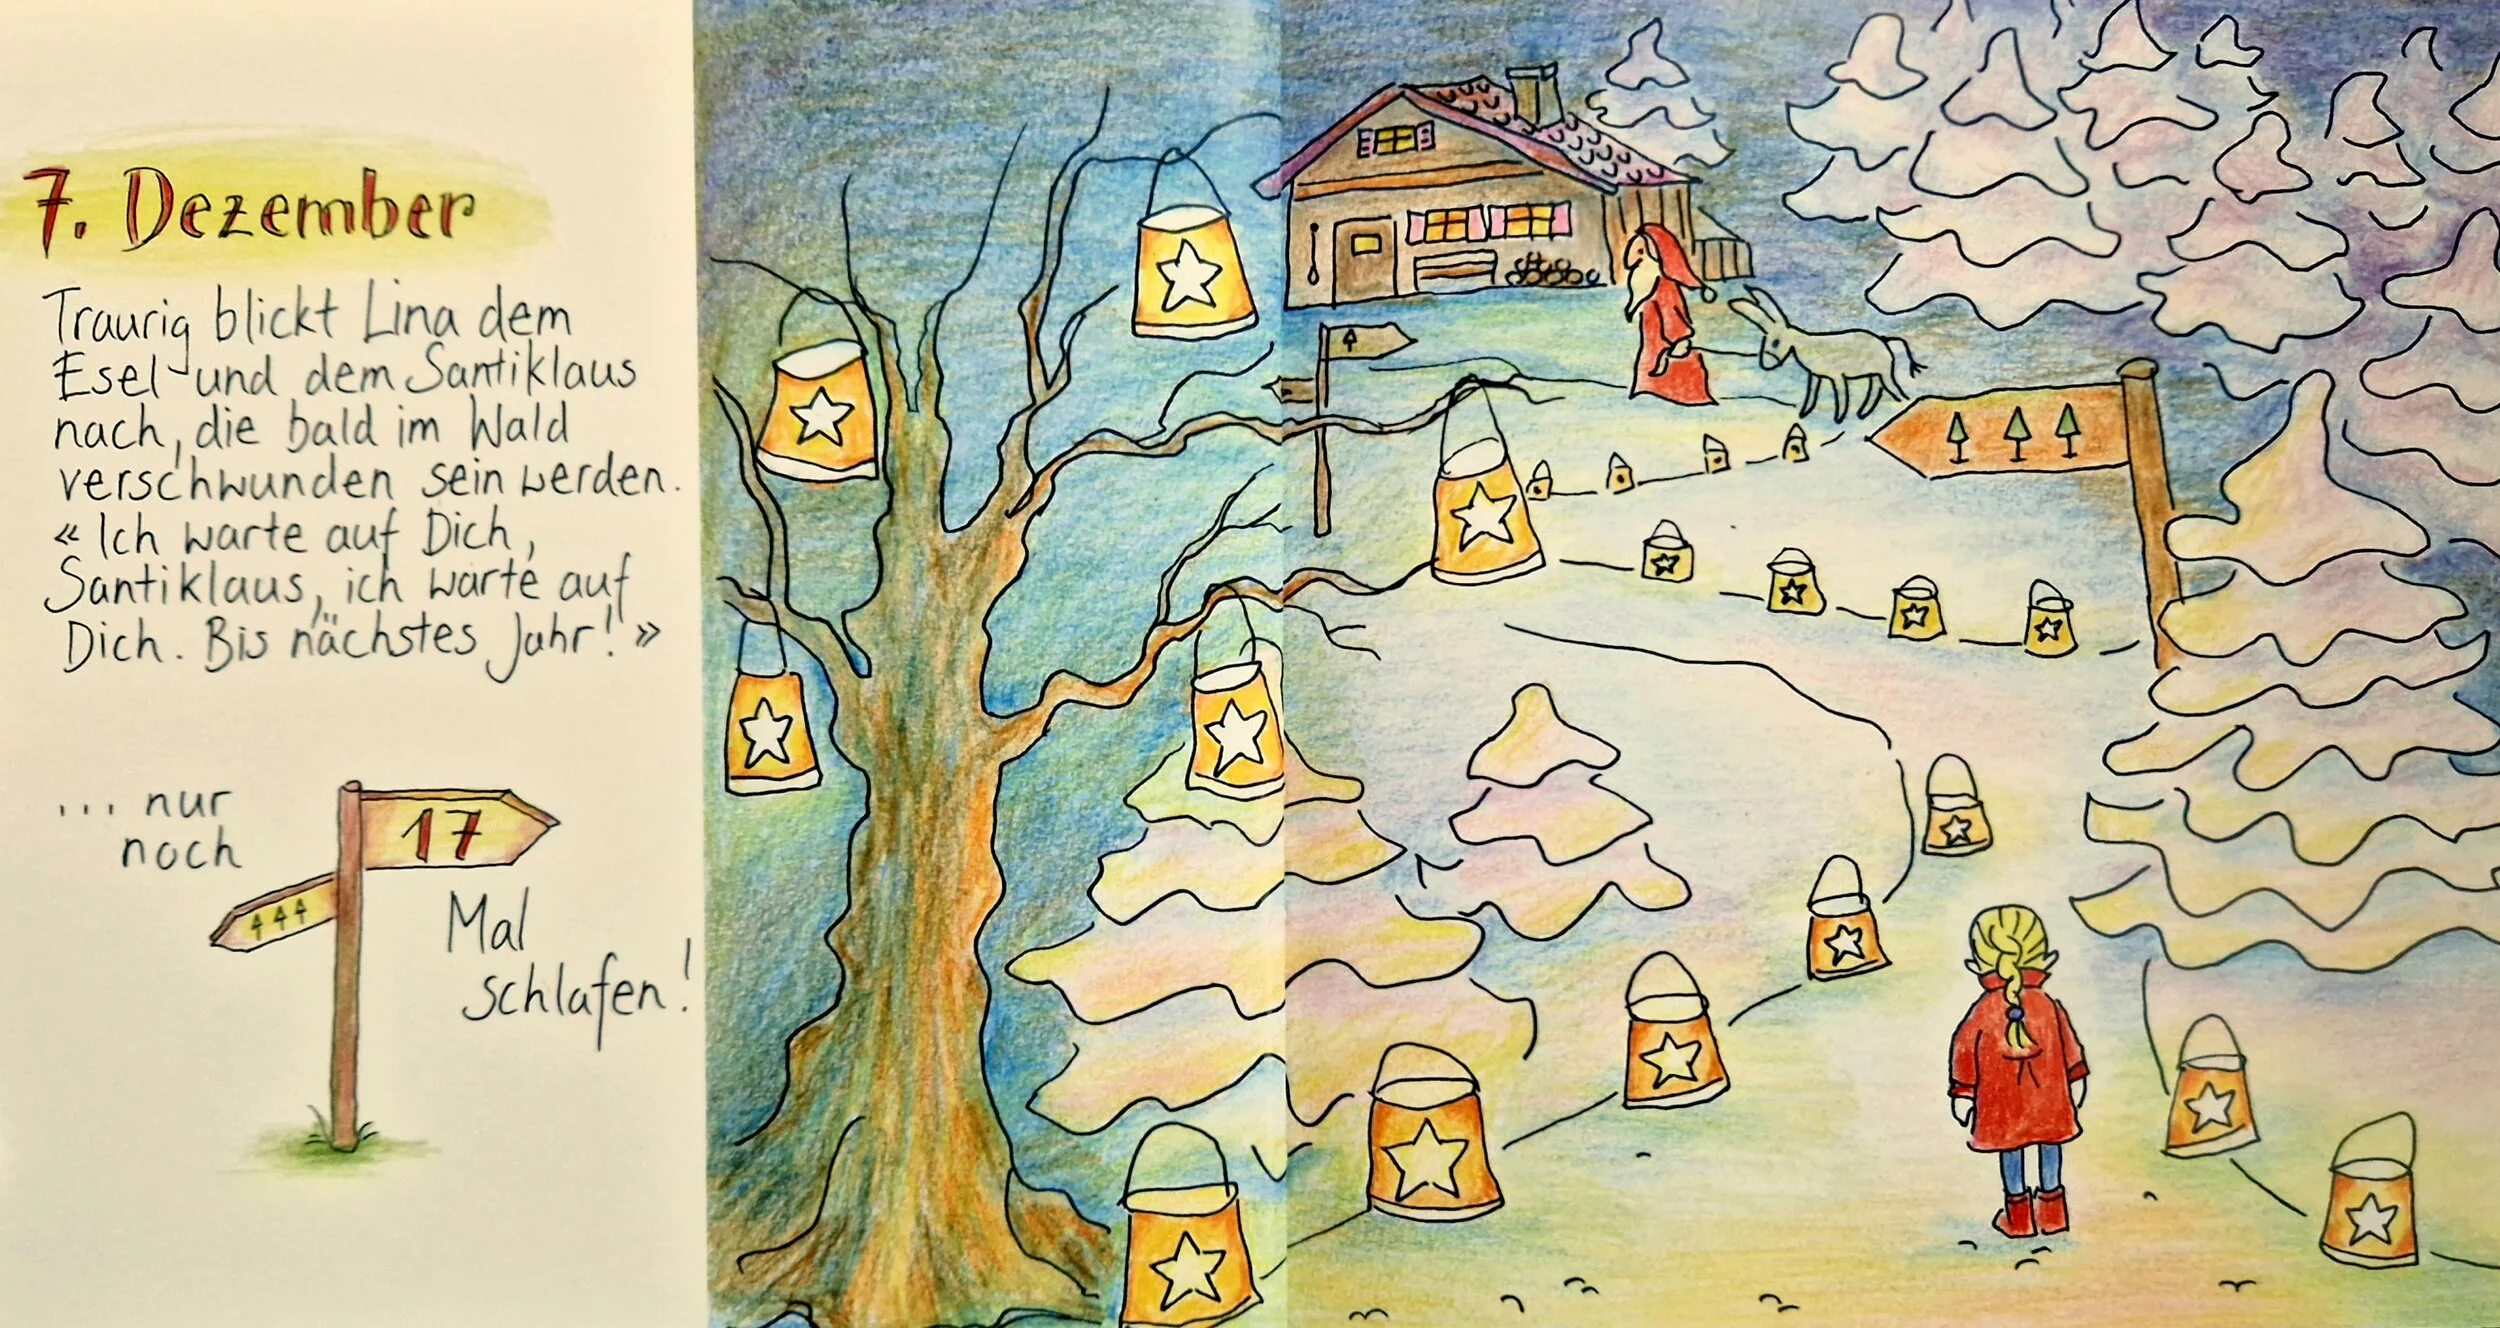 7. Dezember
Traurig blickt Lina dem
Esel und dem Santiklaus
nach, die bald im Wald
verschwunden sein werden.
« Ich warte auf Dich,
Santiklaus, ich warte auf
Dich. Bis nächstes Jahr! »
... nur
noch
17
Mal
schlafen!